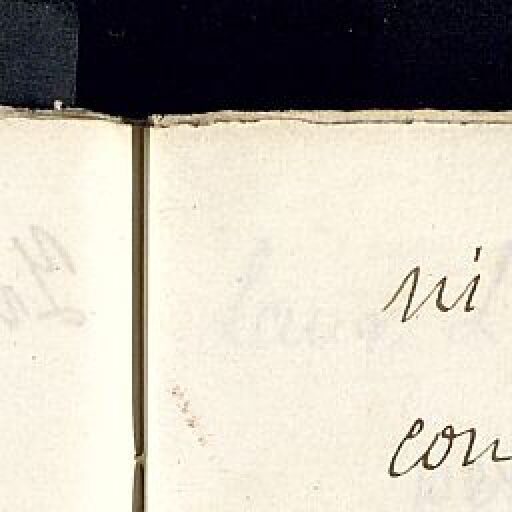 ni
con